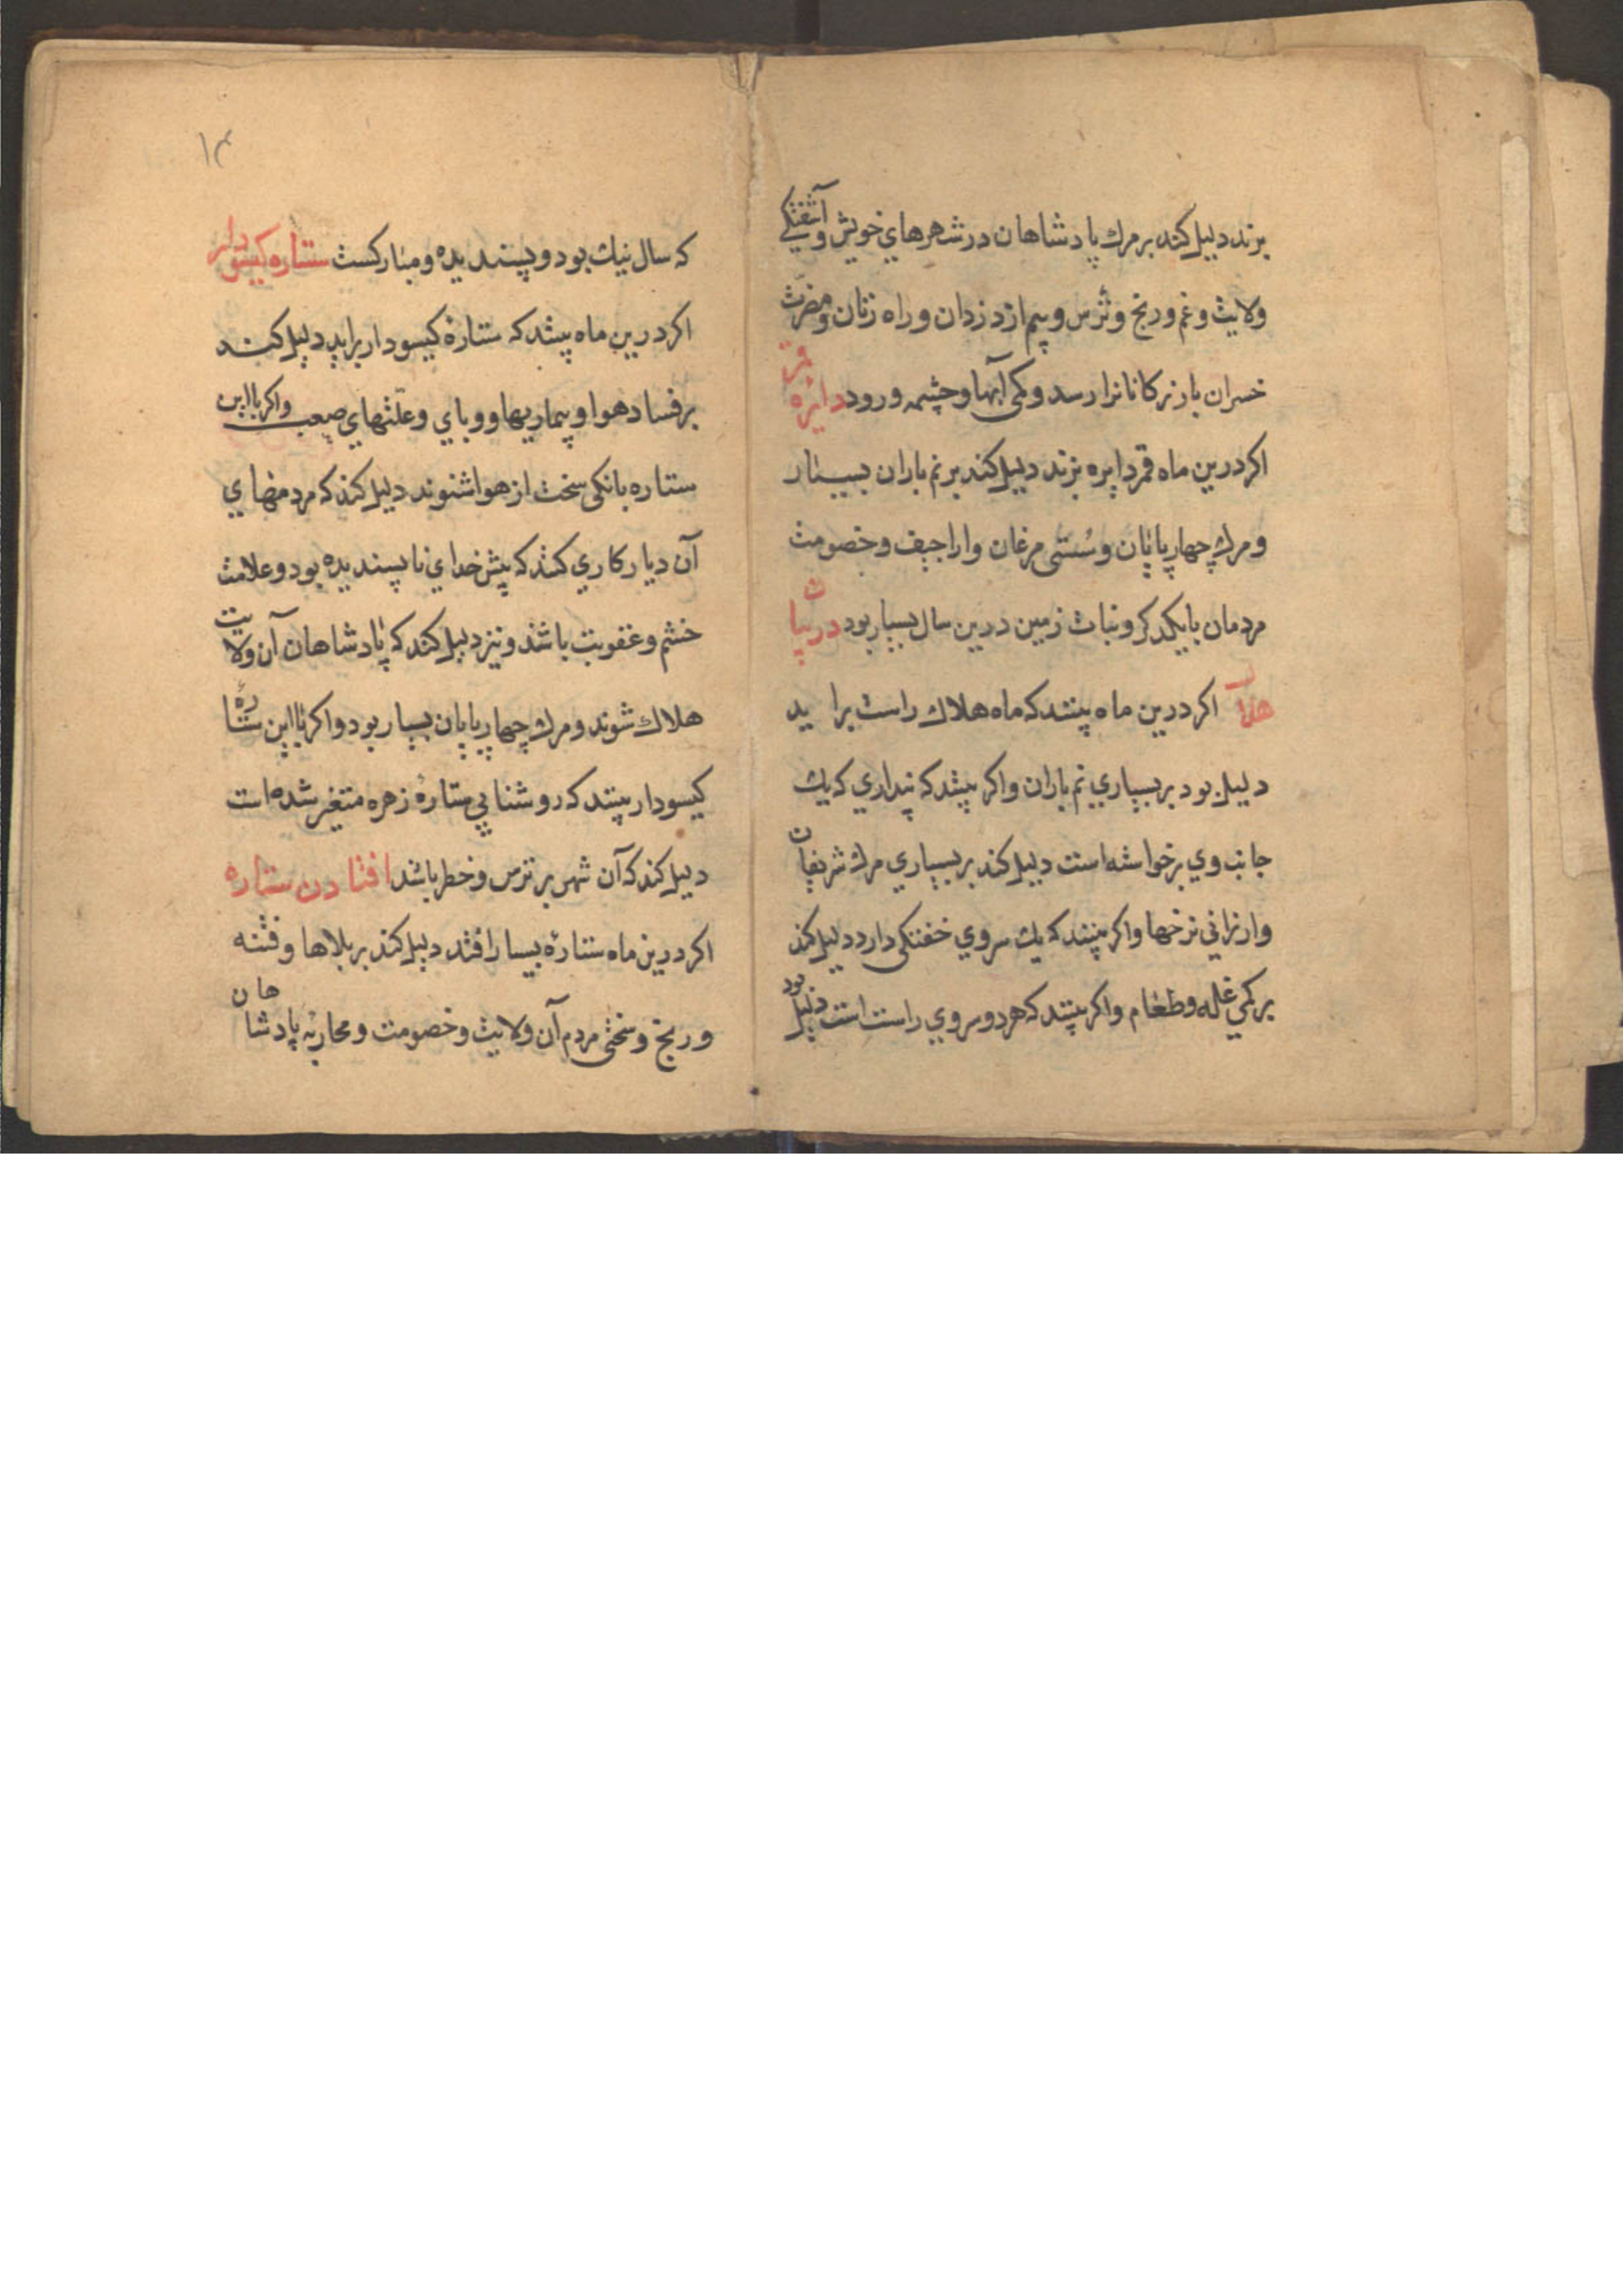 بزند دلیل کند بر مرك پادشاهان در شهرهاي خویش و آشفتکي
ولایت و غم و رنج و ترس و بیم از دزدان و راه زنان و مضرّت
خسران بازرکانانرا رسد و کمی آبها و چشمه و رود دایرۀ قمر
اکر درین ماه قمر دایره بزند دلیل کند بر نم باران بسیار
و مرك چهارپایان و سُستی مرغان و اراجیف و خصومت
مردمان با یکدکر و نبات زمین درین سال بسیار بود در
هلال اکر درین ماه بینند که ماه هلاك راست براید
دلیل بود بر بسیاري نم باران و اکر بینند که پنداري که یك
جانب وي برخواسته است دلیل کند بر بسیاري مرك شریفان
و ارزاني نرخها و اکر بینند که یك سروي خفتکی دارد دلیل کند
بر کمي غله و طعام و اکر بینند که هر دو سروي راست است دلیل بود
۱۴
که سال نیك بود و پسندیده و مبارکست ستاره کیسودار
اکر درین ماه بینند که ستارۀ کیسودار براید دلیل کند
بر فساد هوا و بیماریها و وباي و علّتهاي صعب و اکر با این
ستاره بانکی سخت از هوا شنوند دلیل کند که مردمان
آن دیار کاري کنند که پیش خداي ناپسندیده بود و علامت
خشم و عقوبت باشد و نیز دلیل کند که پادشاهان آن ولایت
هلاك شوند و مرك چهارپایان بسیار بود و اکر با این ستاره
کیسودار بینند که روشنایي ستارۀ زهره متغیر شده است
دلیل کند که آن شهر بر ترس و خطر باشد افتادن ستاره
اکر درین ماه ستارۀ بسیار افتد دلیل کند بر بلاها و فتنه
و رنج و سختی مردم آن ولایت و خصومت و محاربۀ پادشاهان